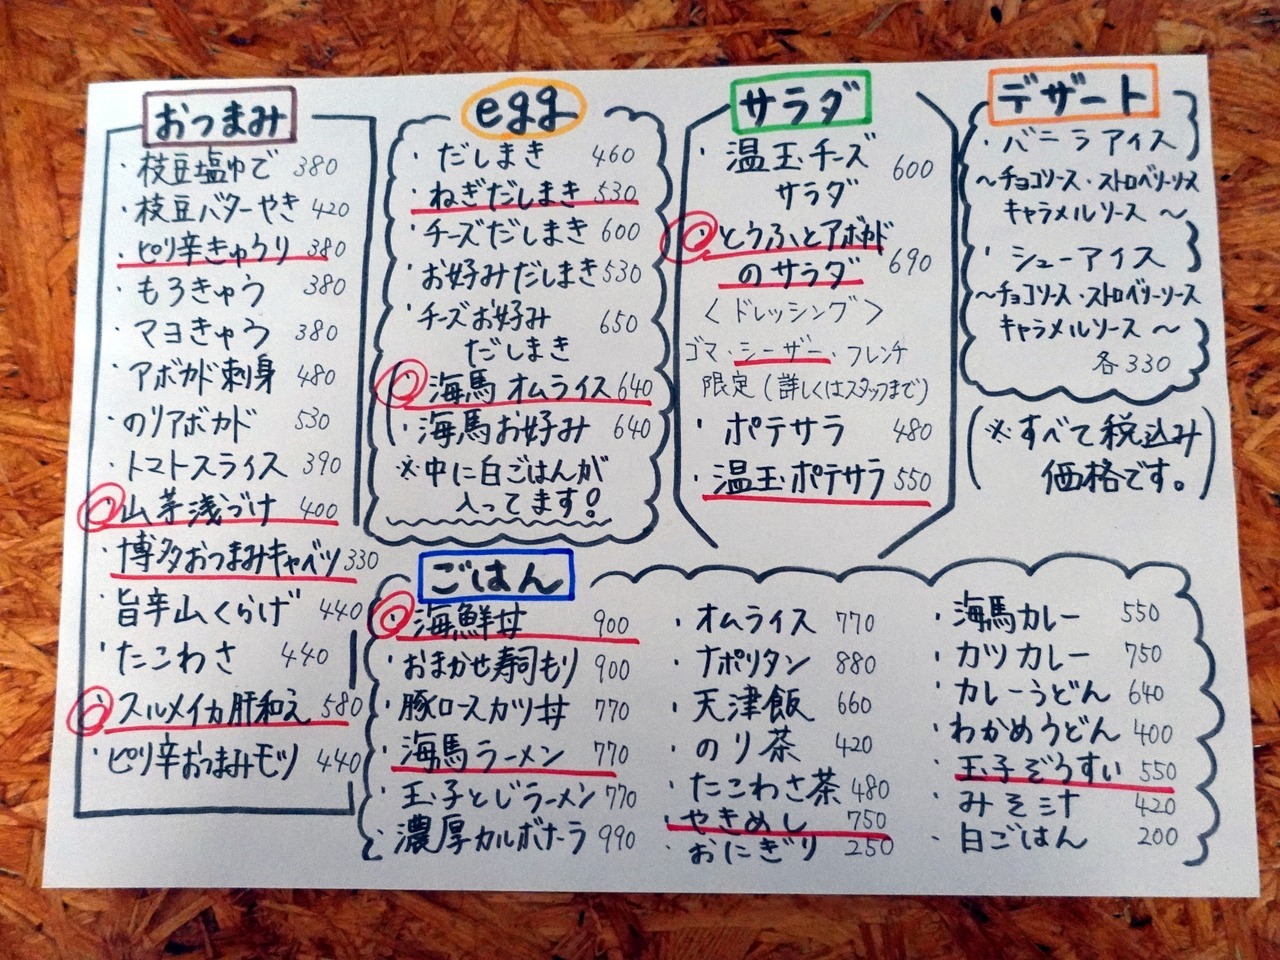 おつまみ
・枝豆塩ゆで 380
・枝豆バターやき 420
・ピリ辛きゅうり 380
・もろきゅう 380
・マヨきゅう 380
・アボカド刺身 480
・のりアボカド 530
・トマトスライス 390
・山芋浅づけ 400
・博多おつまみキャベツ 330
・旨辛山くらげ 440
・たこわさ 440
・スルメイカ肝和え 580
・ピリ辛おつまみモツ 440
egg
・だしまき 460
・ねぎだしまき 530
・チーズだしまき 600
・お好みだしまき 530
・チーズお好み
だしまき 650
・海馬オムライス 640
・海馬お好み 640
※中に白ごはんが
入ってます!
サラダ
・温玉チーズ
サラダ 600
・とうふとアボカド
のサラダ 690
<ドレッシング>
ゴマ・シーザー・フレンチ
限定(詳しくはスタッフまで)
・ポテサラ 480
・温玉ポテサラ 550
デザート
・バニラアイス
〜チョコソース・ストロベリーソース
キャラメルソース〜
・シューアイス
〜チョコソース・ストロベリーソース
キャラメルソース〜
各330
(※すべて税込み
価格です。)
ごはん
・海鮮丼 900
・おまかせ寿司もり 900
・豚ロースカツ丼 770
・海馬ラーメン 770
・玉子とじラーメン 770
・濃厚カルボナーラ 990
・オムライス 770
・ナポリタン 880
・天津飯 660
・のり茶 420
・たこわさ茶 480
・やきめし 750
・おにぎり 250
・海馬カレー 550
・カツカレー 750
・カレーうどん 640
・わかめうどん 400
・玉子ぞうすい 550
・みそ汁 420
・白ごはん 200